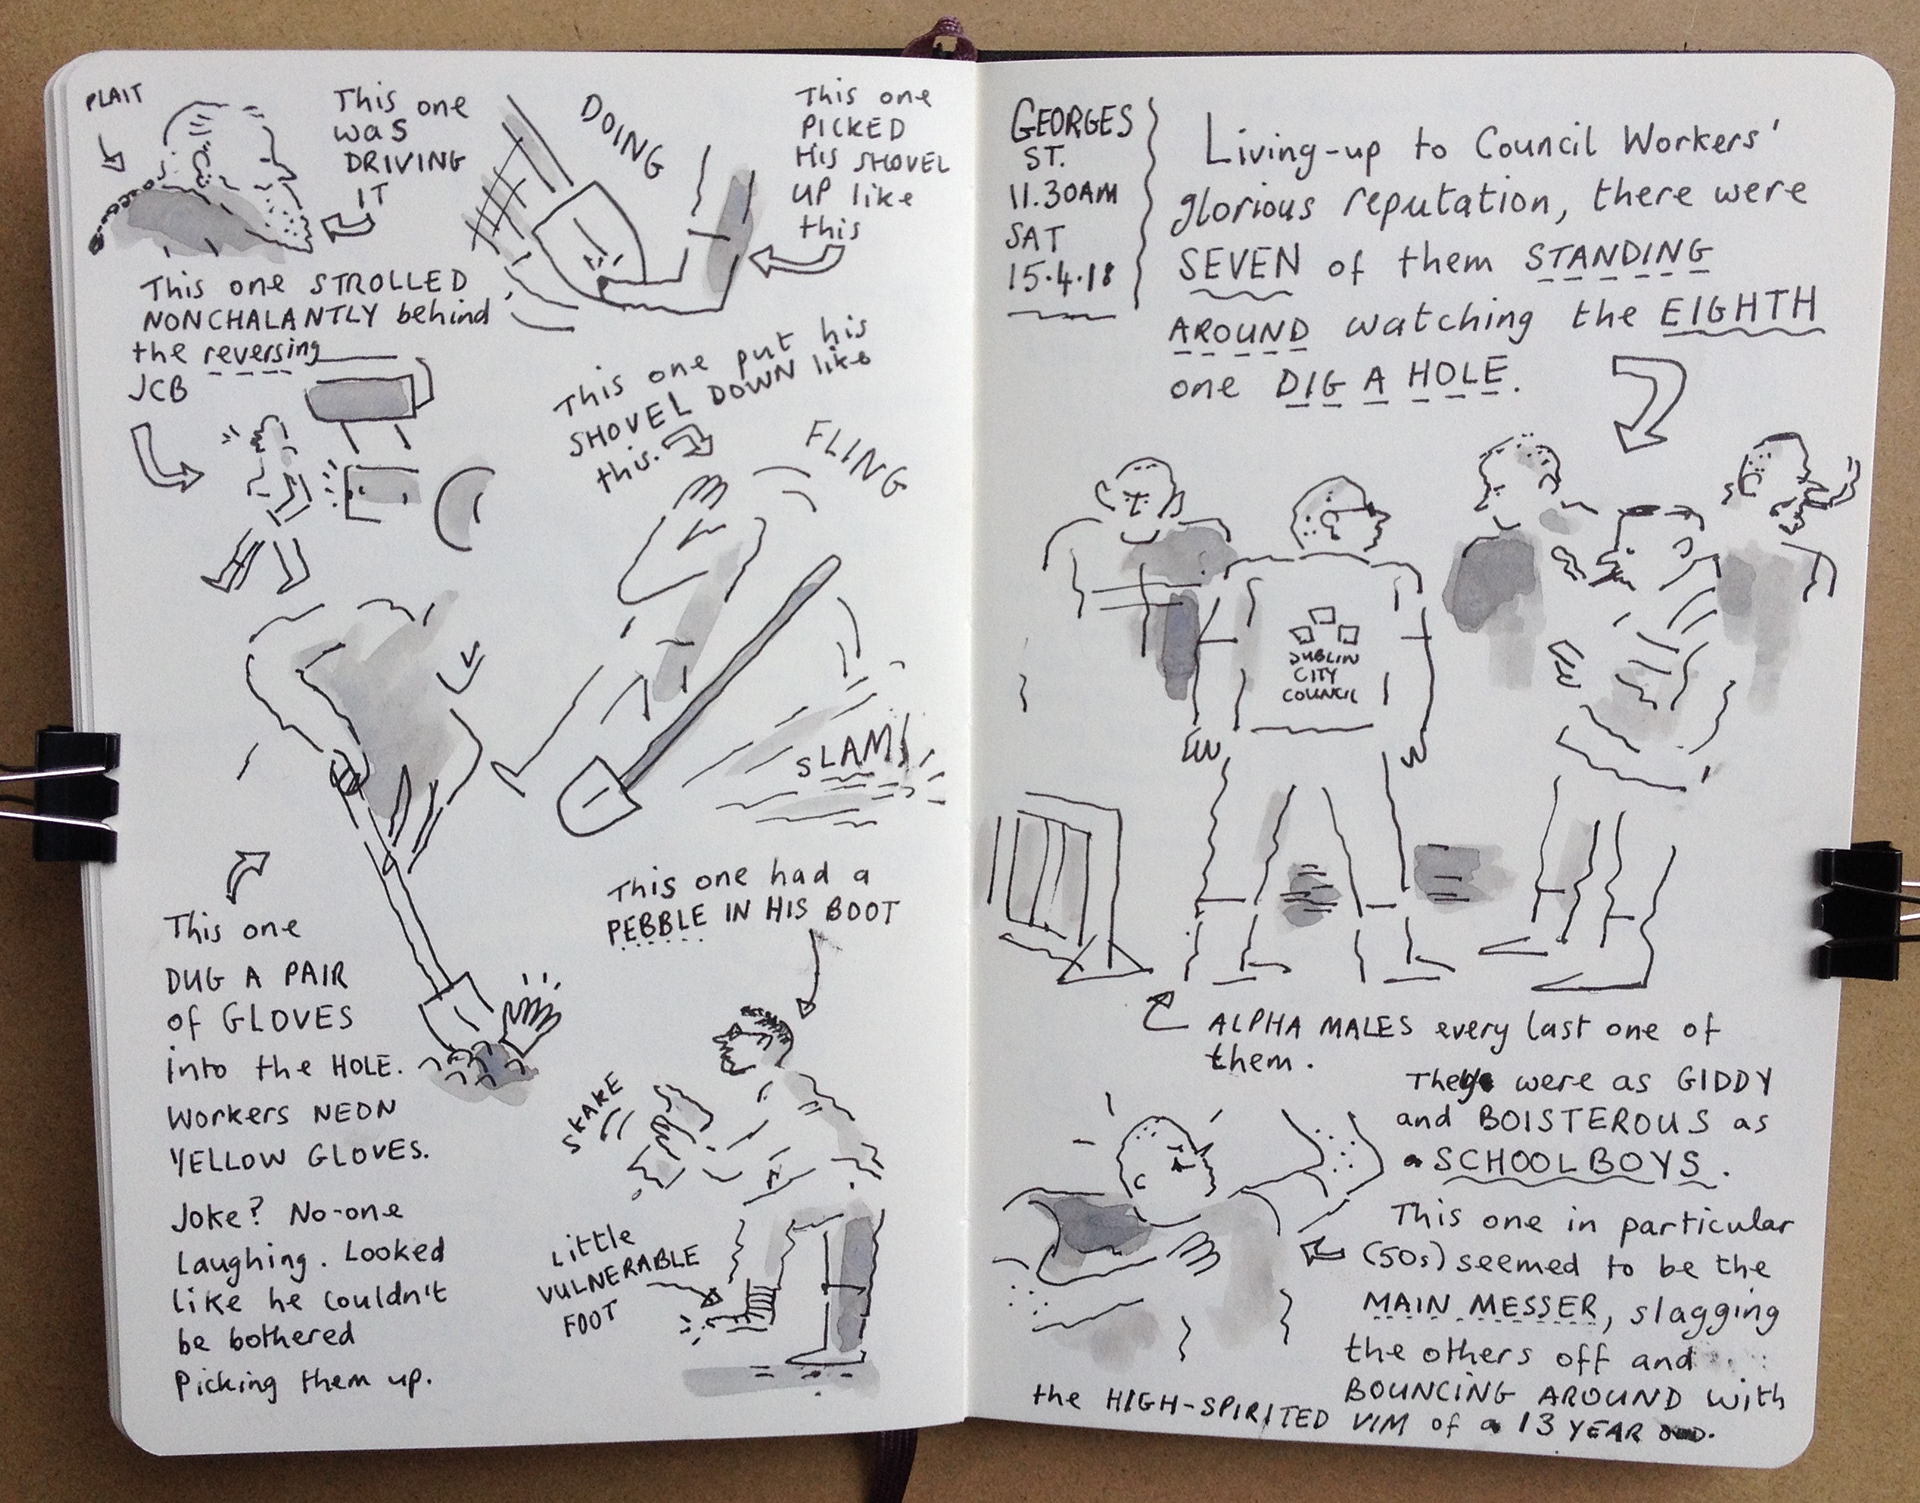 PLAIT
This one
was
DRIVING
IT
DOING
This one
PICKED
HIS SHOVEL
UP like
this
This one STROLLED
NONCHALANTLY behind
the reversing
JCB
This one put his
SHOVEL DOWN like
this.
FLING
SLAM!
This one
DUG A PAIR
of GLOVES
into the HOLE.
Workers NEON
YELLOW GLOVES.
Joke? No-one
Laughing. Looked
like he couldn't
be bothered
Picking them up.
This one had a
PEBBLE IN HIS BOOT
SHAKE
Little
VULNERABLE
FOOT
GEORGES
ST.
11.30AM
SAT
15.4.18
Living-up to Council Workers'
glorious reputation, there were
SEVEN of them STANDING
AROUND watching the EIGHTH
one DIG A HOLE.
DUBLIN
CITY
COUNCIL
ALPHA MALES every last one of
them.
They were as GIDDY
and BOISTEROUS as
SCHOOLBOYS.
This one in particular
(50s) seemed to be the
MAIN MESSER, slagging
the others off and
BOUNCING AROUND with
the HIGH-SPIRITED VIM of a 13 YEAR OLD.